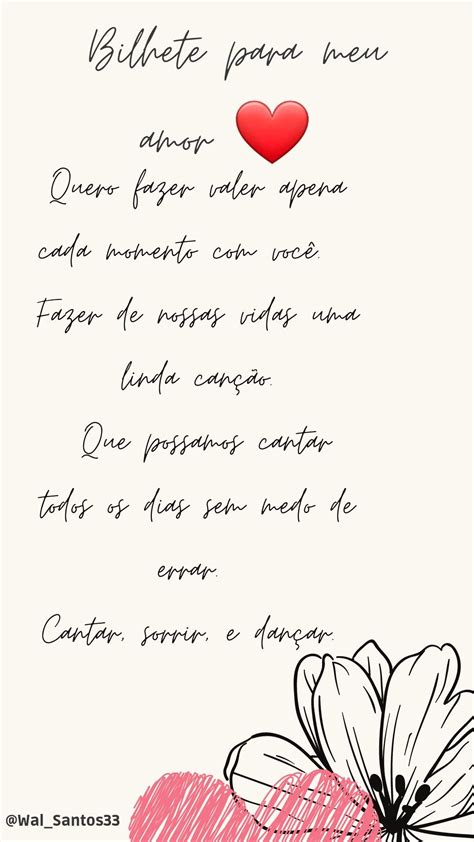 Bilhete para meu
amor ❤️
Quero fazer valer apena
cada momento com você.
Fazer de nossas vidas uma
linda canção.
Que possamos cantar
todos os dias sem medo de
errar.
Cantar, sorrir, e dançar.
@Wal_Santos33